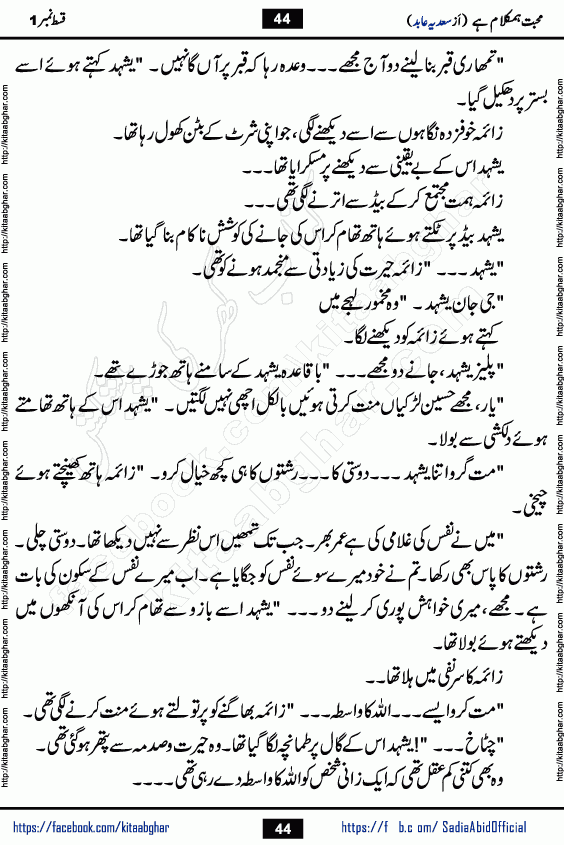 محبت ہمکلام ہے (از سعدیہ عابد) 44 قسط نمبر 1
"تمھاری قبر بنا لینے دو آج مجھے۔۔۔وعدہ رہا کہ قبر پر آں گا نہیں۔ "یشہد کہتے ہوئے اسے
بستر پر دھکیل گیا۔
زائمہ خوفزدہ نگاہوں سے اسے دیکھنے لگی، جو اپنی شرٹ کے بٹن کھول رہا تھا۔
یشہد اس کے بے یقینی سے دیکھنے پر مسکرایا تھا۔۔۔
زائمہ ہمت مجتمع کر کے بیڈ سے اترنے لگی تھی۔
یشہد بیڈ پر ٹکتے ہوئے ہاتھ تھام کر اس کی جانے کی کوشش ناکام بنا گیا تھا۔
"یشہد۔۔۔ "زائمہ حیرت کی زیادتی سے منجمد ہونے کو تھی۔
"جی جان یشہد۔ "وہ مخمور لہجے میں
کہتے ہوئے زائمہ کو دیکھنے لگا۔
"پلیز یشہد، جانے دو مجھے۔۔۔ "باقاعدہ یشہد کے سامنے ہاتھ جوڑے تھے۔
"یار، مجھے حسین لڑکیاں منت کرتی ہوئیں بالکل اچھی نہیں لگتیں۔ "یشہد اس کے ہاتھ تھامتے
ہوئے دلکشی سے بولا۔
"مت گرو اتنا یشہد۔۔۔دوستی کا۔۔۔رشتوں کا ہی کچھ خیال کرو۔ "زائمہ ہاتھ کھینچتے ہوئے
چیخی۔
"میں نے نفس کی غلامی کی ہے عمر بھر۔ جب تک تمھیں اس نظر سے نہیں دیکھا تھا۔ دوستی چلی۔
رشتوں کا پاس بھی رکھا۔ تم نے خود میرے سوئے نفس کو جگایا ہے۔ اب میرے نفس کے سکون کی بات
ہے۔ مجھے، میری خواہش پوری کر لینے دو۔۔۔ "یشہد اسے بازو سے تھام کر اس کی آنکھوں میں
دیکھتے ہوئے بولا تھا۔
زائمہ کا سر نفی میں ہلا تھا۔۔
"مت کرو ایسے۔۔۔اللہ کا واسطہ۔۔۔ "زائمہ بھاگنے کو پر تولتے ہوئے منت کرنے لگی تھی۔
"چٹاخ۔۔۔ "!یشہد اس کے گال پر طمانچہ لگا گیا تھا۔ وہ حیرت و صدمہ سے پتھر ہو گئی تھی۔
وہ بھی کتنی کم عقل تھی کہ ایک زانی شخص کو اللہ کا واسطہ دے رہی تھی۔۔۔۔
https://facebook.com/kitaabghar 44 https://f b.c om/ SadiaAbidOfficial
http://kitaabghar.com http://kitaabghar.com http://kitaabghar.com http://kitaabghar.com http://kitaabghar.com http://kitaabghar.com http://kitaabghar.com http://kitaabghar.com